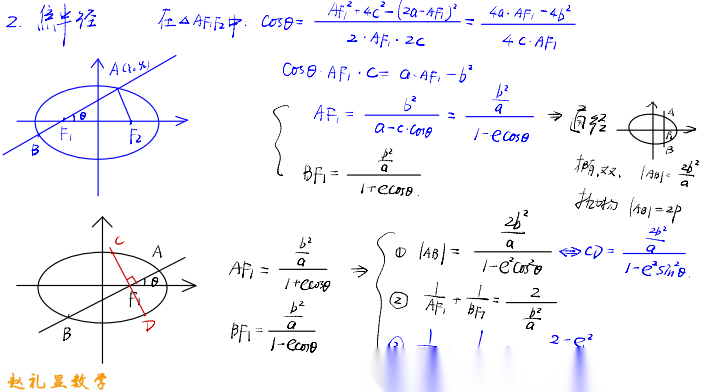 2. 焦半径 在△AF₁F₂中: cosθ = (AF₁² + 4c² - (2a - AF₁)²) / (2·AF₁·2c) = (4a·AF₁ - 4b²) / (4c·AF₁)
cosθ·AF₁·c = a·AF₁ - b²
A(x₀,y₀)
F₁ θ F₂
B
AF₁ = b² / (a - c·cosθ) = (b²/a) / (1 - ecosθ) ⇒ 通径
BF₁ = (b²/a) / (1 + ecosθ)
A
F
B
椭,双. |AB| = 2b²/a
抛物 |AB| = 2p
C
A
F₁ θ
B
D
AF₁ = (b²/a) / (1 + ecosθ) ⇒
BF₁ = (b²/a) / (1 - ecosθ)
① |AB| = (2b²/a) / (1 - e²cos²θ) ⇔ CD = (2b²/a) / (1 - e²sin²θ)
② 1/AF₁ + 1/BF₁ = 2 / (b²/a)
③ 1 1 2 - e²
赵礼显数学